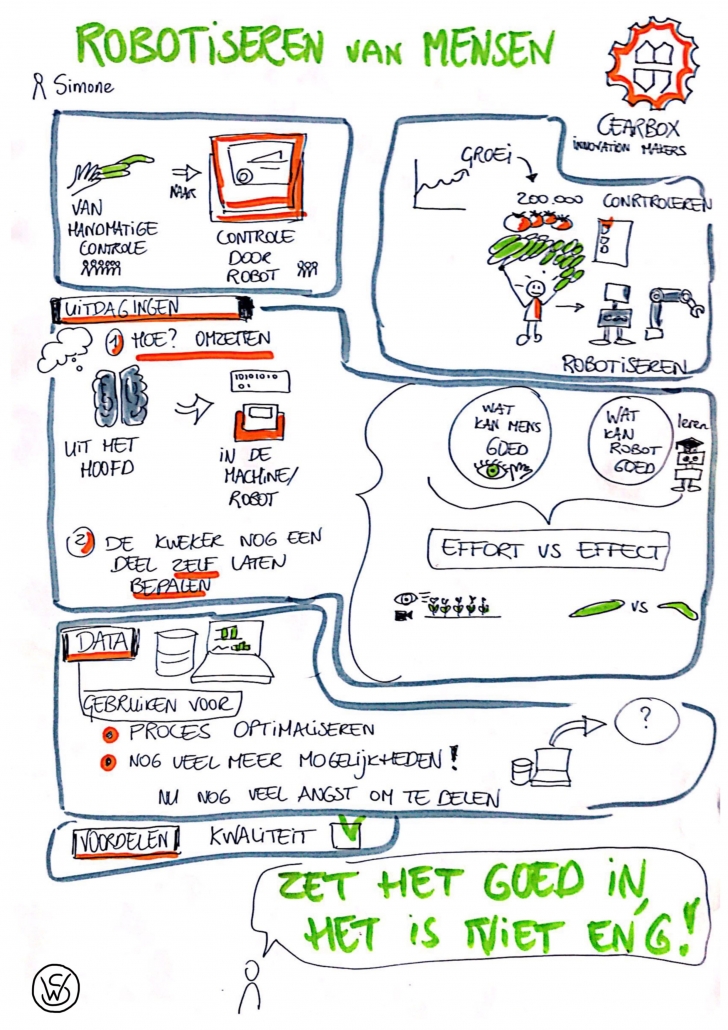 ROBOTISEREN VAN MENSEN
Simone
GEARBOX
INNOVATION MAKERS
VAN
MANOMATIGE
CONTROLE
NAAR
CONTROLE
DOOR
ROBOT
GROEI
200.000
CONRTROLEREN
ROBOTISEREN
UITDAGINGEN
1 HOE? OMZETTEN
UIT HET
HOOFD
10101010
01
IN DE
MACHINE/
ROBOT
2 DE KWEKER NOG EEN
DEEL ZELF LATEN
BEPALEN
WAT
KAN MENS
GOED
WAT
KAN
ROBOT
GOED
leren
EFFORT VS EFFECT
VS
DATA
GEBRUIKEN VOOR
PROCES OPTIMALISEREN
NOG VEEL MEER MOGELIJKHEDEN!
NU NOG VEEL ANGST OM TE DELEN
?
VOORDELEN KWALITEIT
ZET HET GOED IN,
HET IS NIET ENG!